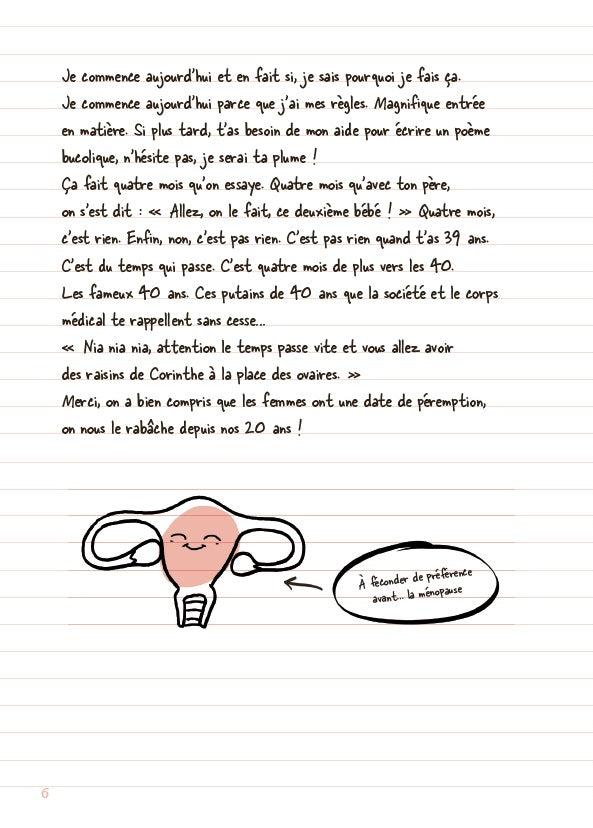 Je commence aujourd'hui et en fait si, je sais pourquoi je fais ça.
Je commence aujourd'hui parce que j'ai mes règles. Magnifique entrée
en matière. Si plus tard, t'as besoin de mon aide pour écrire un poème
bucolique, n'hésite pas, je serai ta plume !
Ça fait quatre mois qu'on essaye. Quatre mois qu'avec ton père,
on s'est dit : « Allez, on le fait, ce deuxième bébé ! » Quatre mois,
c'est rien. Enfin, non, c'est pas rien. C'est pas rien quand t'as 39 ans.
C'est du temps qui passe. C'est quatre mois de plus vers les 40.
Les fameux 40 ans. Ces putains de 40 ans que la société et le corps
médical te rappellent sans cesse...
« Nia nia nia, attention le temps passe vite et vous allez avoir
des raisins de Corinthe à la place des ovaires. »
Merci, on a bien compris que les femmes ont une date de péremption,
on nous le rabâche depuis nos 20 ans !
À féconder de préférence
avant... la ménopause
6